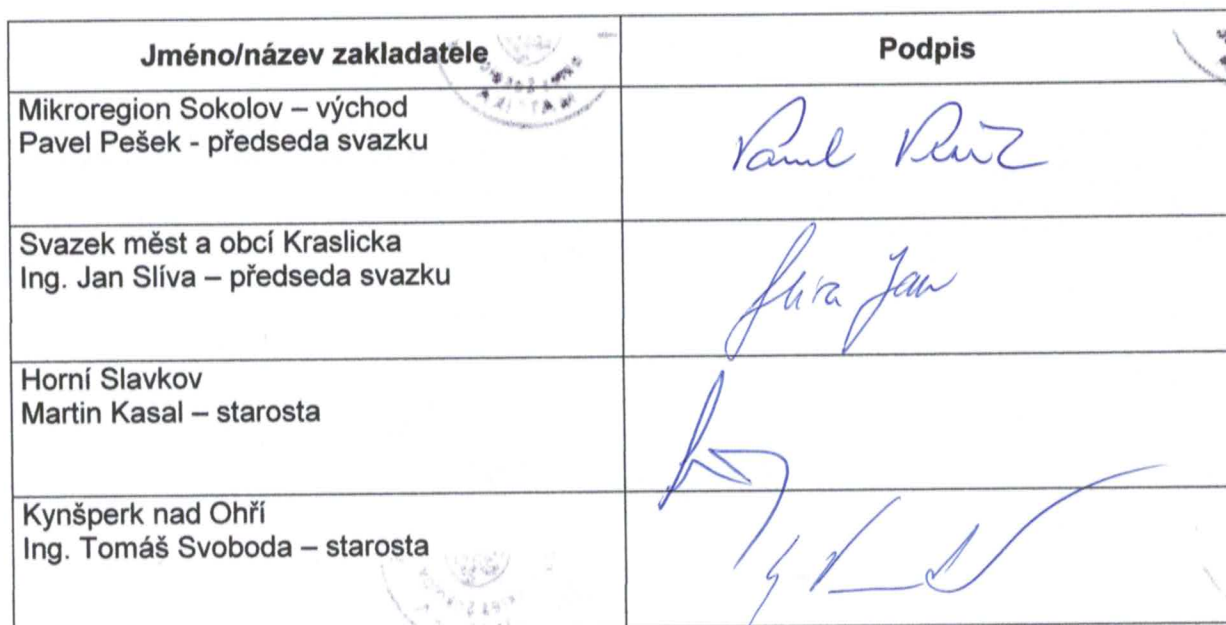 Jméno/název zakladatele
Podpis
Mikroregion Sokolov – východ
Pavel Pešek - předseda svazku
Svazek měst a obcí Kraslicka
Ing. Jan Slíva – předseda svazku
Horní Slavkov
Martin Kasal – starosta
Kynšperk nad Ohří
Ing. Tomáš Svoboda – starosta